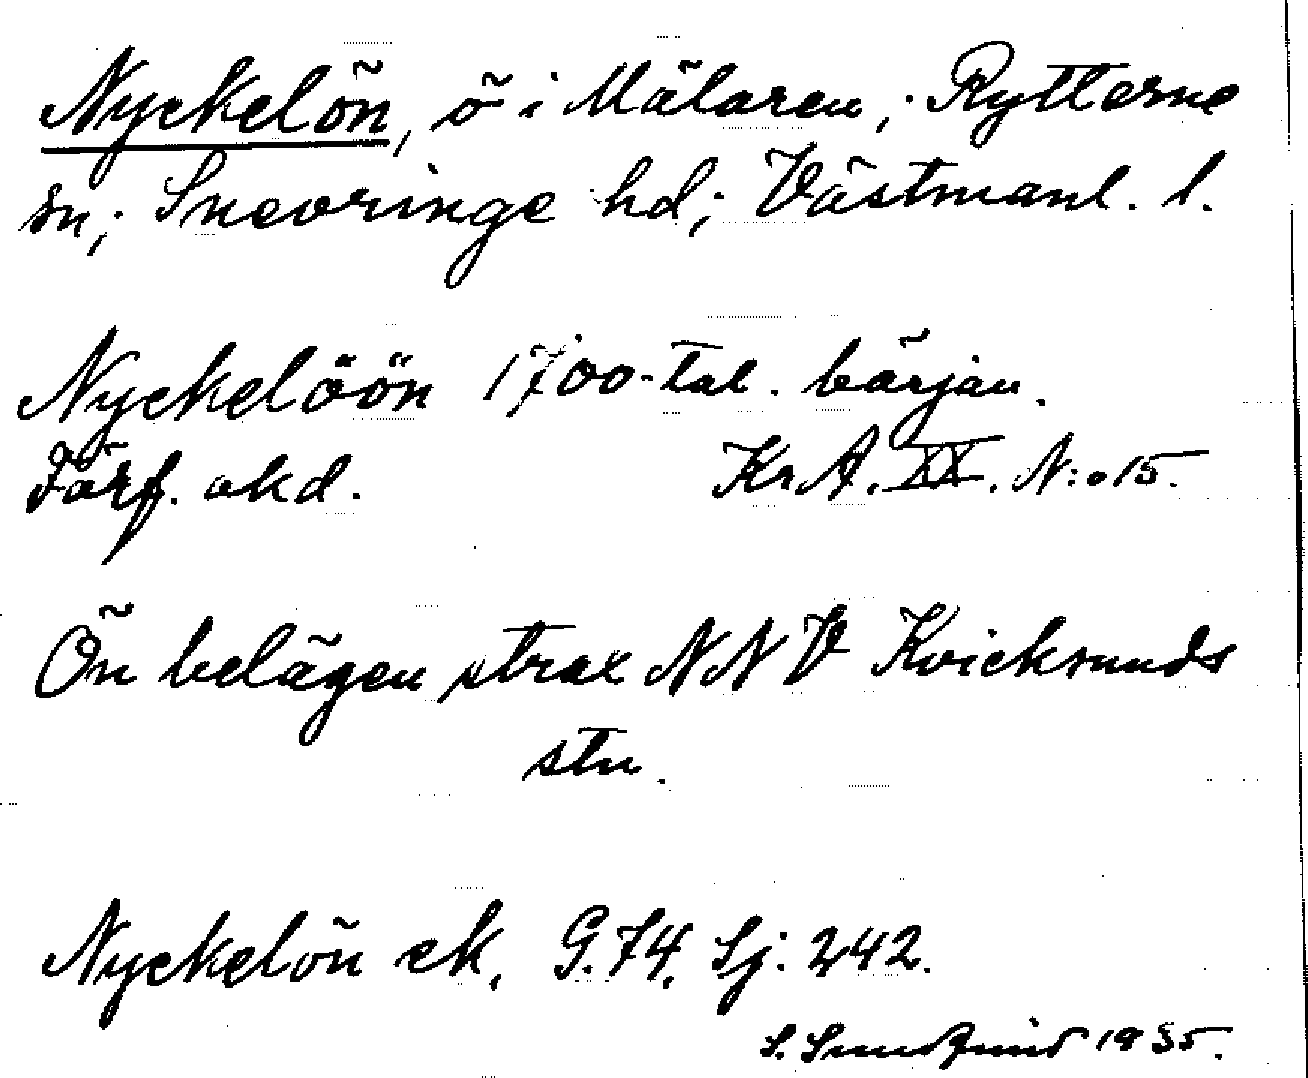 Nyckelön, ö i Mälaren; Rytterne
sn; Snevringe hd; Västmanl. l.
Nyckelöön 1700-tal. början.
Förf. okd. Kr.A. XX. N:o 15.
Ön belägen strax NNV Kvicksunds
stn.
Nyckelön ek. G.74. Sj: 242.
S. 1935.